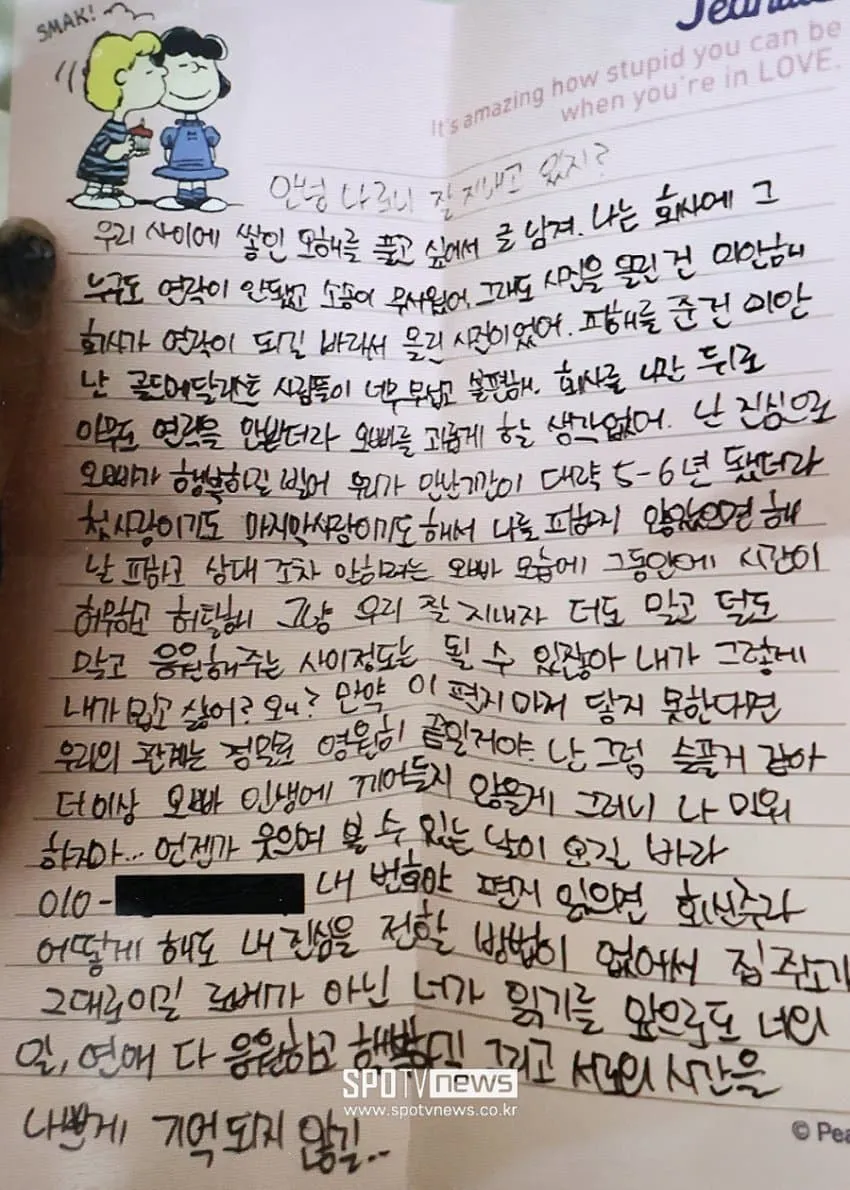 SMAK!
It's amazing how stupid you can be
when you're in LOVE.
안녕 나 로니 잘 지내고 있지?
우리 사이에 쌓인 오해를 풀고 싶어서 글 남겨. 나는 회사에 그
누구도 연락이 안됐고 소송이 무서웠어, 그래도 사진을 올린 건 미안해
회사가 연락이 되길 바라서 올린 사진이었어. 피해를 준건 미안
난 골드메달리스트 사람들이 너무 무섭고 불편해. 회사를 나간 뒤로
아무도 연락을 안받더라 오빠를 괴롭게 할 생각없어. 난 진심으로
오빠가 행복하길 빌어 우리가 만난기간이 대략 5-6년 됐더라
첫사랑이기도 마지막사랑이기도 해서 나를 피하지 않았으면 해
날 피하고 상대 조차 안하려는 오빠 모습에 그동안에 시간이
허무하고 허탈해 그냥 우리 잘 지내자 더도 말고 덜도
말고 응원해주는 사이정도는 될 수 있잖아 내가 그렇게
내가 밉고 싫어? 왜? 만약 이 편지마저 닿지 못한다면
우리의 관계는 정말로 영원히 끝일거야. 난 그럼 슬플거 같아
더이상 오빠 인생에 끼어들지 않을게 그러니 나 미워
하지마... 언젠가 웃으며 볼 수 있는 날이 오길 바라
010- 내 번호야 편지 읽으면 회신주라
어떻게 해도 내 진심을 전할 방법이 없어서 집 주소가
그대로이길 로베가 아닌 너가 읽기를 앞으로도 너의
일, 연애 다 응원하고 행복하길 그리고 서로의 시간을
나쁘게 기억되지 않길..
SPOTV news
www.spotvnews.co.kr
© Pea